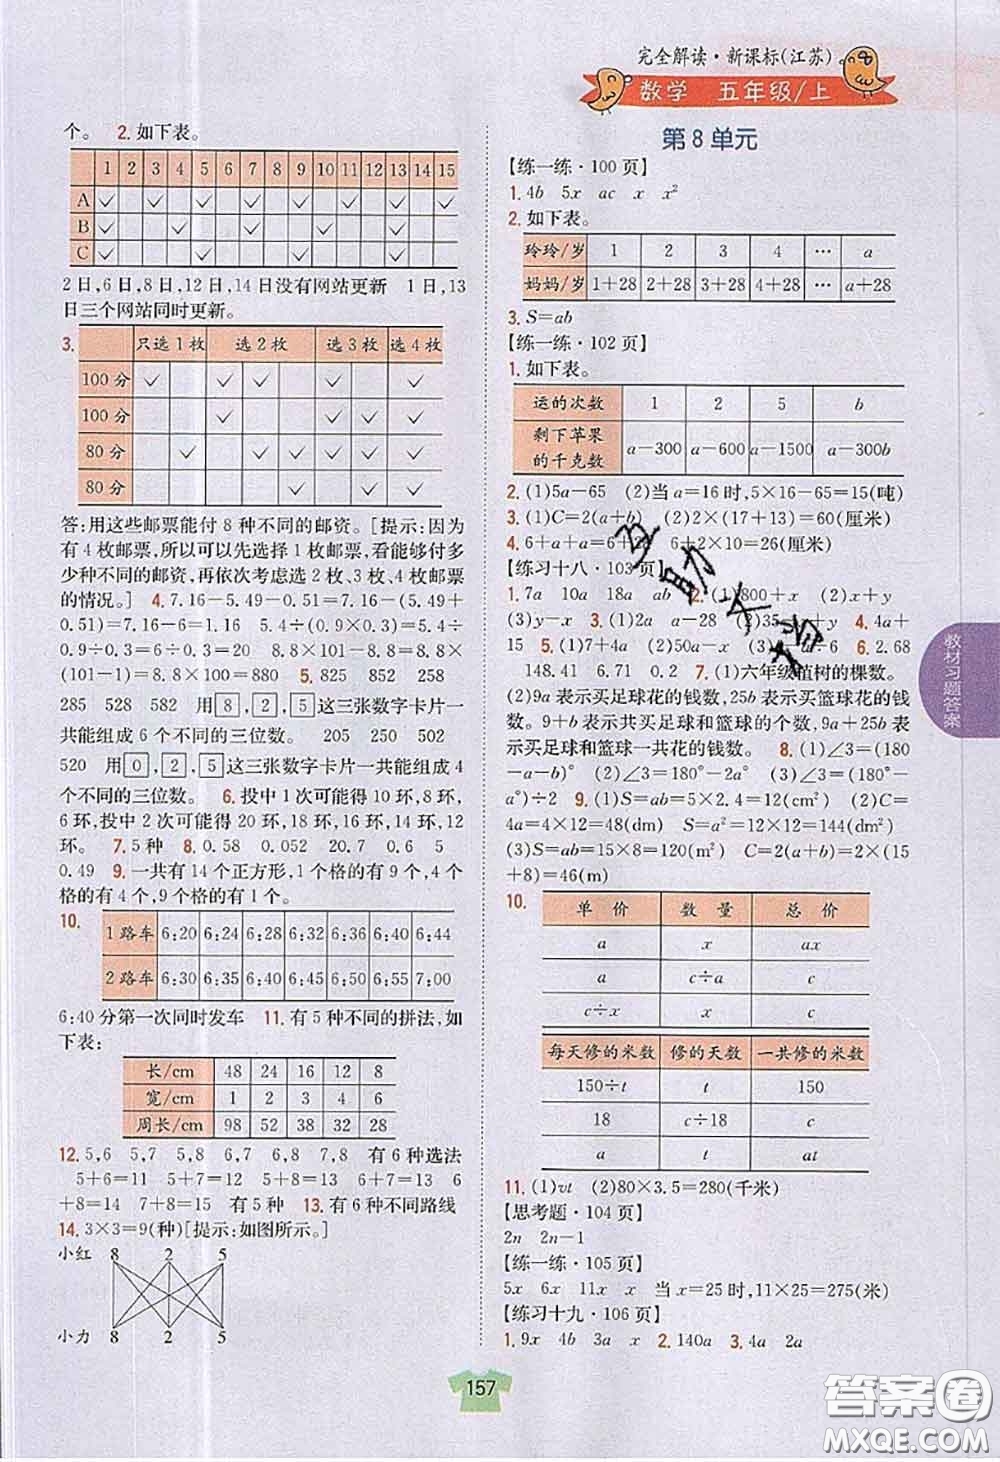 完全解读·新课标(江苏)
数学 五年级/上
个。 2.如下表。
1 2 3 4 5 6 7 8 9 10 11 12 13 14 15
A ✓ ✓ ✓ ✓ ✓ ✓ ✓ ✓
B ✓ ✓ ✓ ✓ ✓
C ✓ ✓ ✓ ✓
2日,6日,8日,12日,14日没有网站更新 1日,13
日三个网站同时更新。
3. 只选1枚 选2枚 选3枚 选4枚
100分 ✓ ✓ ✓ ✓ ✓ ✓
100分 ✓ ✓ ✓ ✓
80分 ✓ ✓ ✓ ✓ ✓
80分 ✓ ✓ ✓
答:用这些邮票能付8种不同的邮资。[提示:因为
有4枚邮票,所以可以先选择1枚邮票,看能够付多
少种不同的邮资,再依次考虑选2枚、3枚、4枚邮票
的情况。] 4.7.16-5.49-0.51=7.16-(5.49+
0.51)=7.16-6=1.16 5.4÷0.9÷0.3=6÷
0.9÷0.3=2 8.8×101-8.8=8.8×
(101-1)=8.8×100=880 5.825 852 258
285 528 582 用8,2,5这三张数字卡片一
共能组成6个不同的三位数。 205 250 502
520 用0,2,5这三张数字卡片一共能组成4
个不同的三位数。 6.投中1次可能得10环,8环,
6环,投中2次可能得20环,18环,16环,14环,12
环。 7.5种 8.0.58 0.052 20.7 0.6 5
0.49 9.一共有14个正方形,1个格的有9个,4个
格的有4个,9个格的有1个。
10. 1路车 6:20 6:24 6:28 6:32 6:36 6:40 6:44
2路车 6:30 6:35 6:40 6:45 6:50 6:55 7:00
6:40分第一次同时发车 11.有5种不同的拼法,如
下表:
长/cm 48 24 16 12 8
宽/cm 1 2 3 4 6
周长/cm 98 52 38 32 28
12.5,6 5,7 5,8 6,7 6,8 7,8 有6种选法
5+6=11 5+7=12 5+8=13 6+7=13 6
+8=14 7+8=15 有5种 13.有6种不同路线
14.3×3=9(种)[提示:如图所示。]
小红 8 2 5
小力 8 2 5
第8单元
【练一练·100页】
1.4b 5x ac x x²
2.如下表。
玲玲/岁 1 2 3 4 … a
妈妈/岁 1+28 2+28 3+28 4+28 … a+28
3.S=ab
【练一练·102页】
1.如下表。
运的次数 1 2 5 b
剩下苹果
的千克数 a-300 a-600 a-1500 a-300b
2.(1)5a-65 (2)当a=16时,5×16-65=15(吨)
3.(1)C=2(a+b) (2)2×(17+13)=60(厘米)
4.6+a+a=6+2a 6+2×10=26(厘米)
【练习十八·103页】
1.7a 10a 18a ab 2.(1)800+x (2)x÷2
(3)y-x 3.(1)2a a-28 (2)35 4.4a+
a 5.(1)7+4a (2)50a-x (3)a÷6 6.2.68
148.41 6.71 0.2 7.(1)六年级植树的棵数。
(2)9a表示买足球花的钱数,25b表示买篮球花的钱
数。9+b表示共买足球和篮球的个数,9a+25b表
示买足球和篮球一共花的钱数。 8.(1)∠3=(180
-a-b)° (2)∠3=180°-2a° (3)∠3=(180°-
a°)÷2 9.(1)S=ab=5×2.4=12(cm²) (2)C=
4a=4×12=48(dm) S=a²=12×12=144(dm²)
(3)S=ab=15×8=120(m²) C=2(a+b)=2×(15
+8)=46(m)
10. 单价 数量 总价
a x ax
a c÷a c
c÷x x c
每天修的米数 修的天数 一共修的米数
150÷t t 150
18 c÷18 c
a t at
11.(1)vt (2)80×3.5=280(千米)
【思考题·104页】
2n 2n-1
【练一练·105页】
5x 6x 11x x 当x=25时,11×25=275(米)
【练习十九·106页】
1.9x 4b 3a x 2.140a 3.4a 2a
教材习题答案
157
答案圈
MXQE.COM